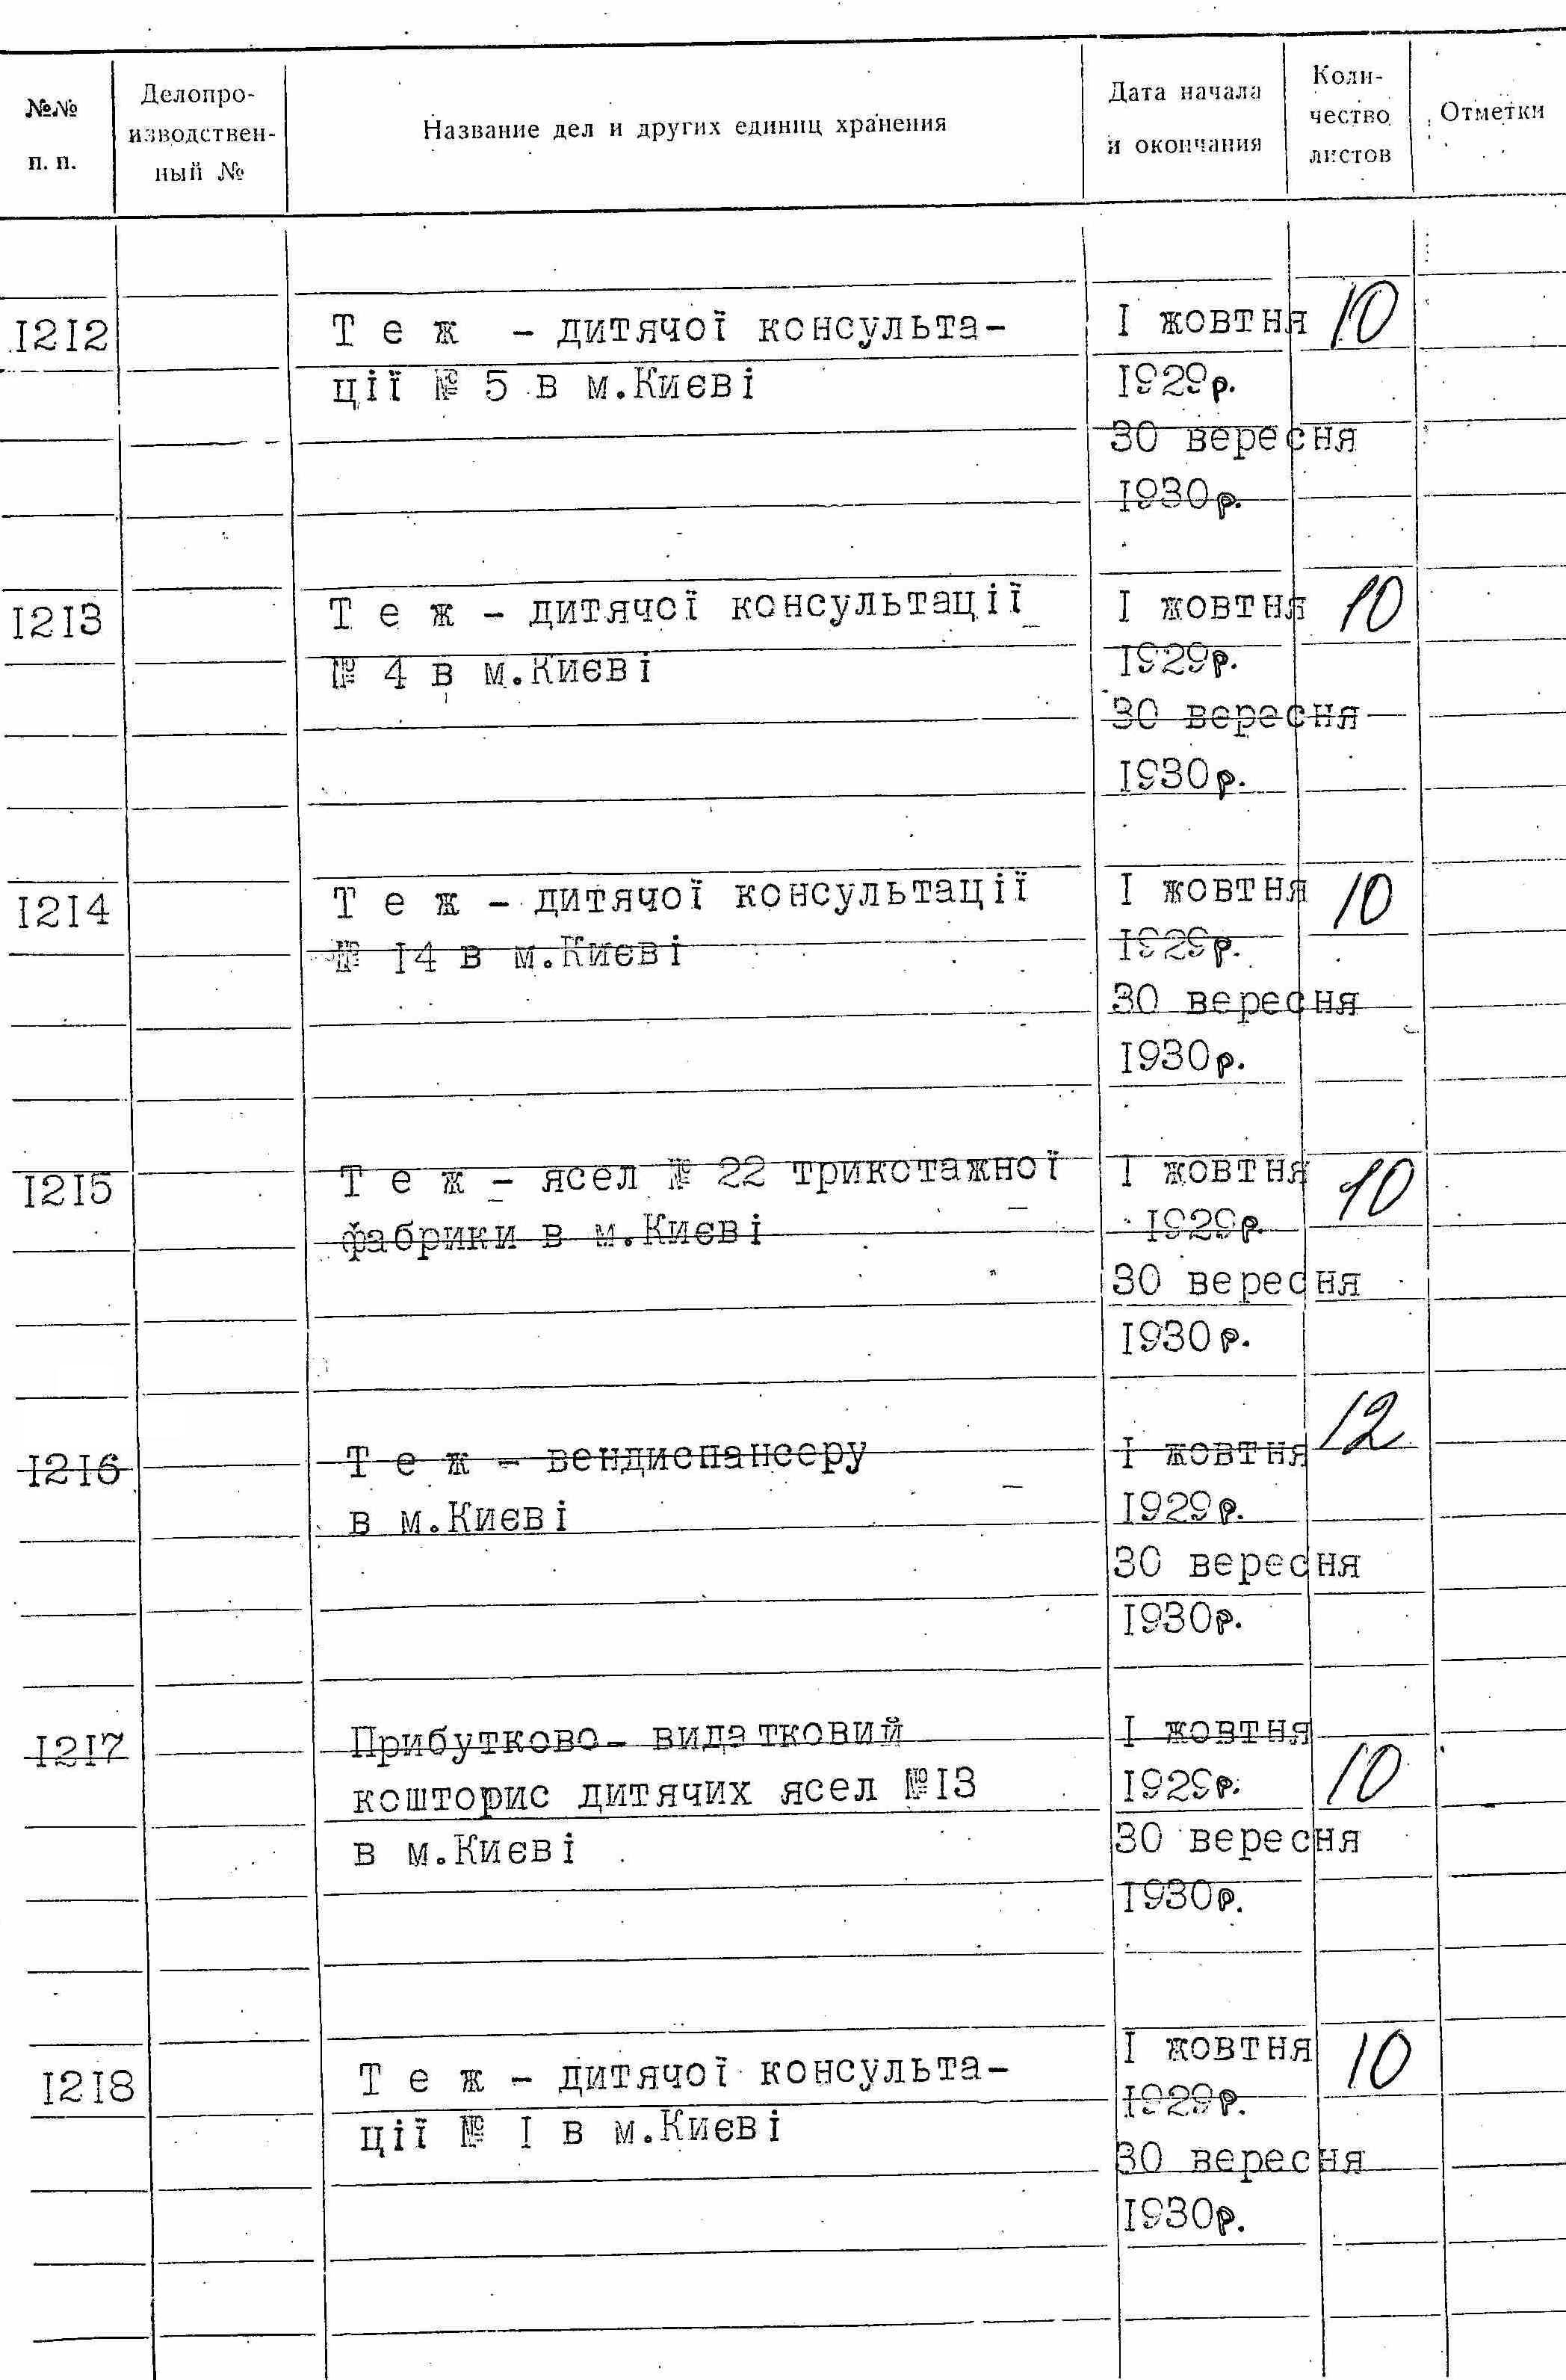 №№ п. п.
Делопро-
изводствен-
ный №
Название дел и других единиц хранения
Дата начала
и окончания
Коли-
чество
листов
Отметки
I2I2
Т е ж - дитячої консульта-
ції № 5 в м.Києві
I жовтня
I929р.
30 вересня
I930р.
10
I2I3
Т е ж - дитячої консультації
№ 4 в м.Києві
I жовтня
I929р.
30 вересня
I930р.
10
I2I4
Т е ж - дитячої консультації
№ I4 в м.Києві
I жовтня
I929р.
30 вересня
I930р.
10
I2I5
Т е ж - ясел № 22 трикотажної
фабрики в м.Києві
I жовтня
I929р.
30 вересня
I930р.
10
I2I6
Т е ж - вендиспансеру
в м.Києві
I жовтня
I929р.
30 вересня
I930р.
12
I2I7
Прибутково- видатковий
кошторис дитячих ясел №I3
в м.Києві
I жовтня
I929р.
30 вересня
I930р.
10
I2I8
Т е ж - дитячої консульта-
ції № I в м.Києві
I жовтня
I929р.
30 вересня
I930р.
10